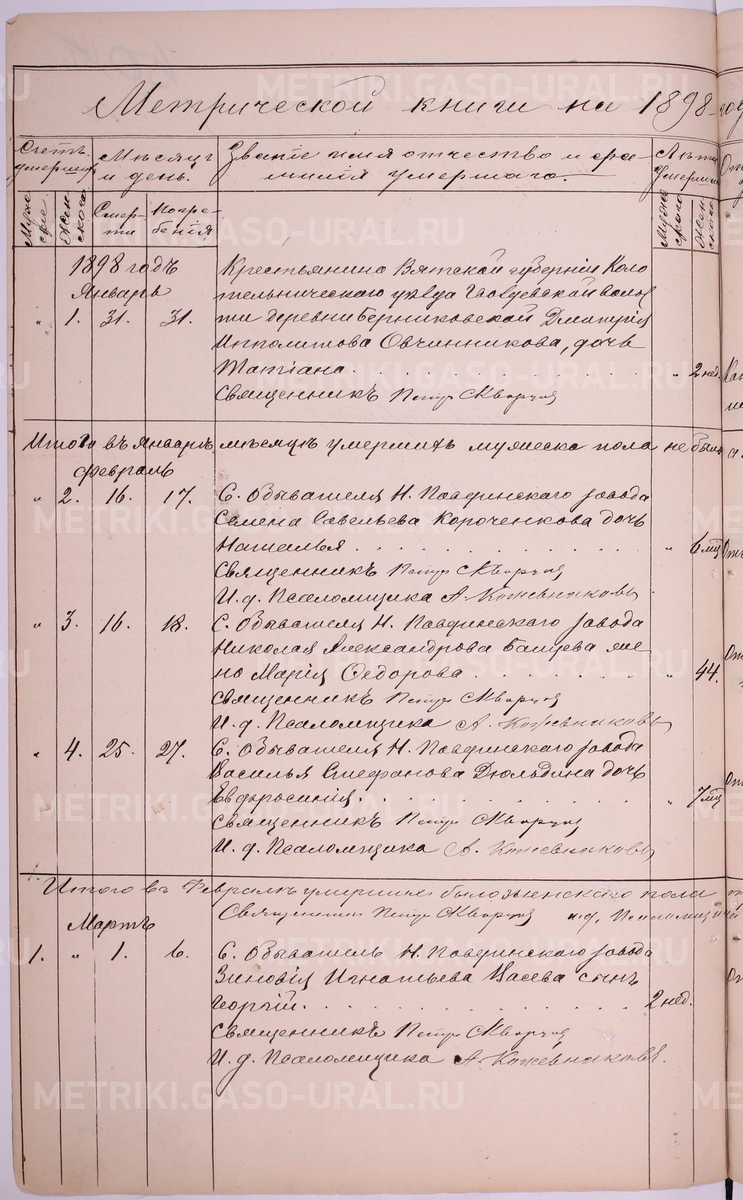 Метрической книги на 1898 год
Счетъ умершихъ
Мѣсяцъ и день.
Званіе имя отчество и фамилія умершаго.
Лѣта умершаго
Мужескаго
Женскаго
Смерти
Погребенія
Мужескаго
Женскаго
1898 годъ
Январь
Крестьянина Вятской губерніи Кот
тельническаго уѣзда волос
„ 1. 31. 31. ти деревни Берниковской Дмитрія
Ипполитова Овчинникова, дочь
Татіана „ 2 нед.
Священникъ Петръ Скворцов
Итого въ Январѣ мѣсяцѣ умершихъ мужеска пола не было
Февраль
„ 2. 16. 17. С. Обывателя Н. Павдинскаго завода
Семена Савельева Короченкова дочь
Наталья „ 6 мѣс
Священникъ Петръ Скворцов
И. д. Псаломщика А. Кожевниковъ
„ 3. 16. 18. С. Обывателя Н. Павдинскаго завода
Николая Александрова жена
Марія Федорова „ 44.
Священникъ Петръ Скворцов
И. д. Псаломщика А. Кожевниковъ
„ 4. 25. 27. С. Обывателя Н. Павдинскаго завода
Василья Стефанова Дюльдина дочь
Евфросинія „ 7 мѣс
Священникъ Петръ Скворцов
И. д. Псаломщика А. Кожевниковъ
Итого въ Февралѣ умершихъ было женскаго пола
Священникъ Петръ Скворцов и. д. Псаломщика
Мартъ
1. „ 1. 6. С. Обыватель Н. Павдинскаго завода
Зиновія Игнатьева Васева сынъ
Георгій 2 нед.
Священникъ Петръ Скворцов
И. д. Псаломщика А. Кожевниковъ.
METRIKI.GASO-URAL.RU